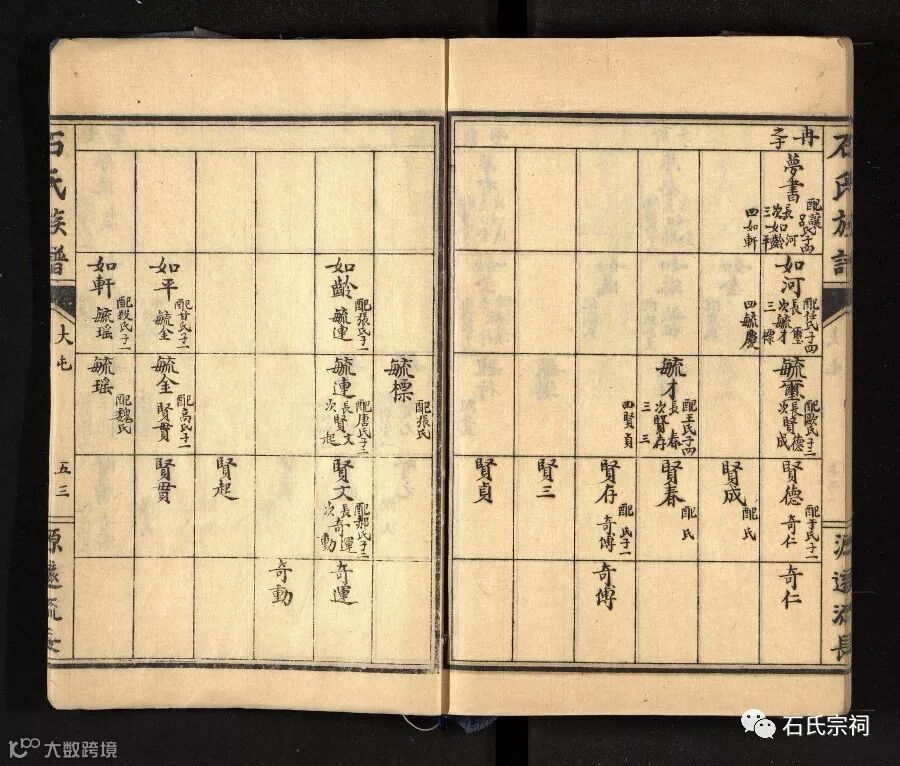 石氏族譜
源遠流長
冉
之子
夢書
配讓氏子四
長河
次如齡
三如平
四如軒
如河
配任氏子四
長璽
次毓才
三標
四毓慶
毓璽
配歐氏子二
長賢德
次賢成
賢德
配于氏子一
奇仁
奇仁
賢成
配氏
毓才
配王氏子四
長春
次賢存
三三
四賢貞
賢春
配氏
賢存
配氏子一
奇傅
奇傅
賢三
賢貞
毓標
配張氏
如齡
配張氏子一
毓連
毓連
配唐氏子二
長賢文
次起
賢文
配郝氏子二
長奇運
次動
奇運
奇動
賢起
如平
配甘氏子一
毓金
毓金
配高氏子一
賢貫
賢貫
如軒
配段氏子一
毓瑤
毓瑤
配魏氏
石氏族譜
大屯
五三
源遠流長
石氏宗祠
大数跨境